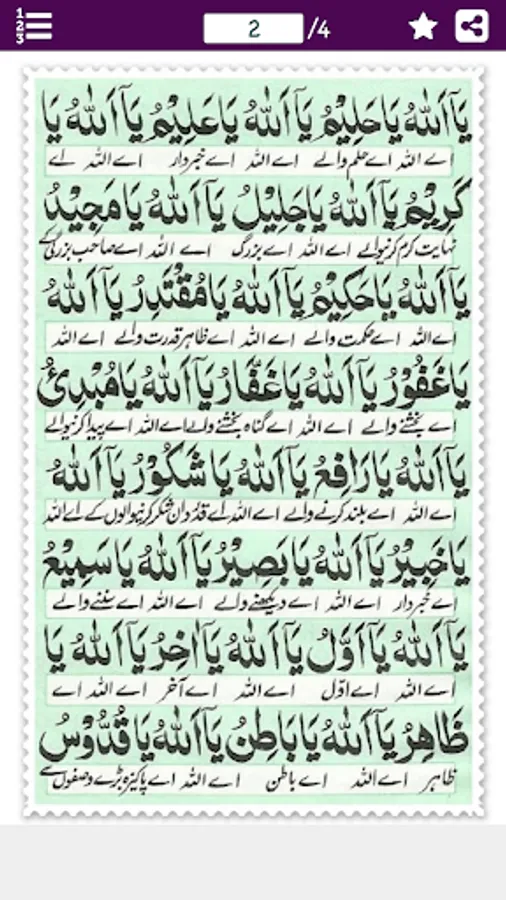 1
2
3
2 /4
يَآ اَللّٰهُ يَاحَلِيْمُ يَآ اَللّٰهُ يَاعَلِيْمُ يَآ اَللّٰهُ يَا
اے اللہ اے حلم والے اے اللہ اے خبردار اے اللہ اے
كَرِيْمُ يَآ اَللّٰهُ يَاجَلِيْلُ يَآ اَللّٰهُ يَامَجِيْدُ
نہایت کرم کرنیوالے اے اللہ اے بزرگ اے اللہ اے صاحب بزرگی کے
يَآ اَللّٰهُ يَاحَكِيْمُ يَآ اَللّٰهُ يَامُقْتَدِرُ يَآ اَللّٰهُ
اے اللہ اے حکمت والے اے اللہ اے ظاہر قدرت والے اے اللہ
يَاغَفُوْرُ يَآ اَللّٰهُ يَاغَفَّارُ يَآ اَللّٰهُ يَامُبْدِئُ
اے بخشنے والے اے اللہ اے گناہ بخشنے والے اے اللہ اے پیدا کرنیوالے
يَآ اَللّٰهُ يَارَافِعُ يَآ اَللّٰهُ يَا شَكُوْرُ يَآ اَللّٰهُ
اے اللہ اے بلند کرنے والے اے اللہ اے قدردان شکر کرنیوالوں کے اے اللہ
يَاخَبِيْرُ يَآ اَللّٰهُ يَابَصِيْرُ يَآ اَللّٰهُ يَاسَمِيْعُ
اے خبردار اے اللہ اے دیکھنے والے اے اللہ اے سننے والے
يَآ اَللّٰهُ يَآ اَوَّلُ يَآ اَللّٰهُ يَآ اٰخِرُ يَآ اَللّٰهُ يَا
اے اللہ اے اوّل اے اللہ اے آخر اے اللہ اے
ظَاهِرُ يَآ اَللّٰهُ يَابَاطِنُ يَآ اَللّٰهُ يَاقُدُّوْسُ
ظاہر اے اللہ اے باطن اے اللہ اے پاکیزہ بڑے وصفوں کے